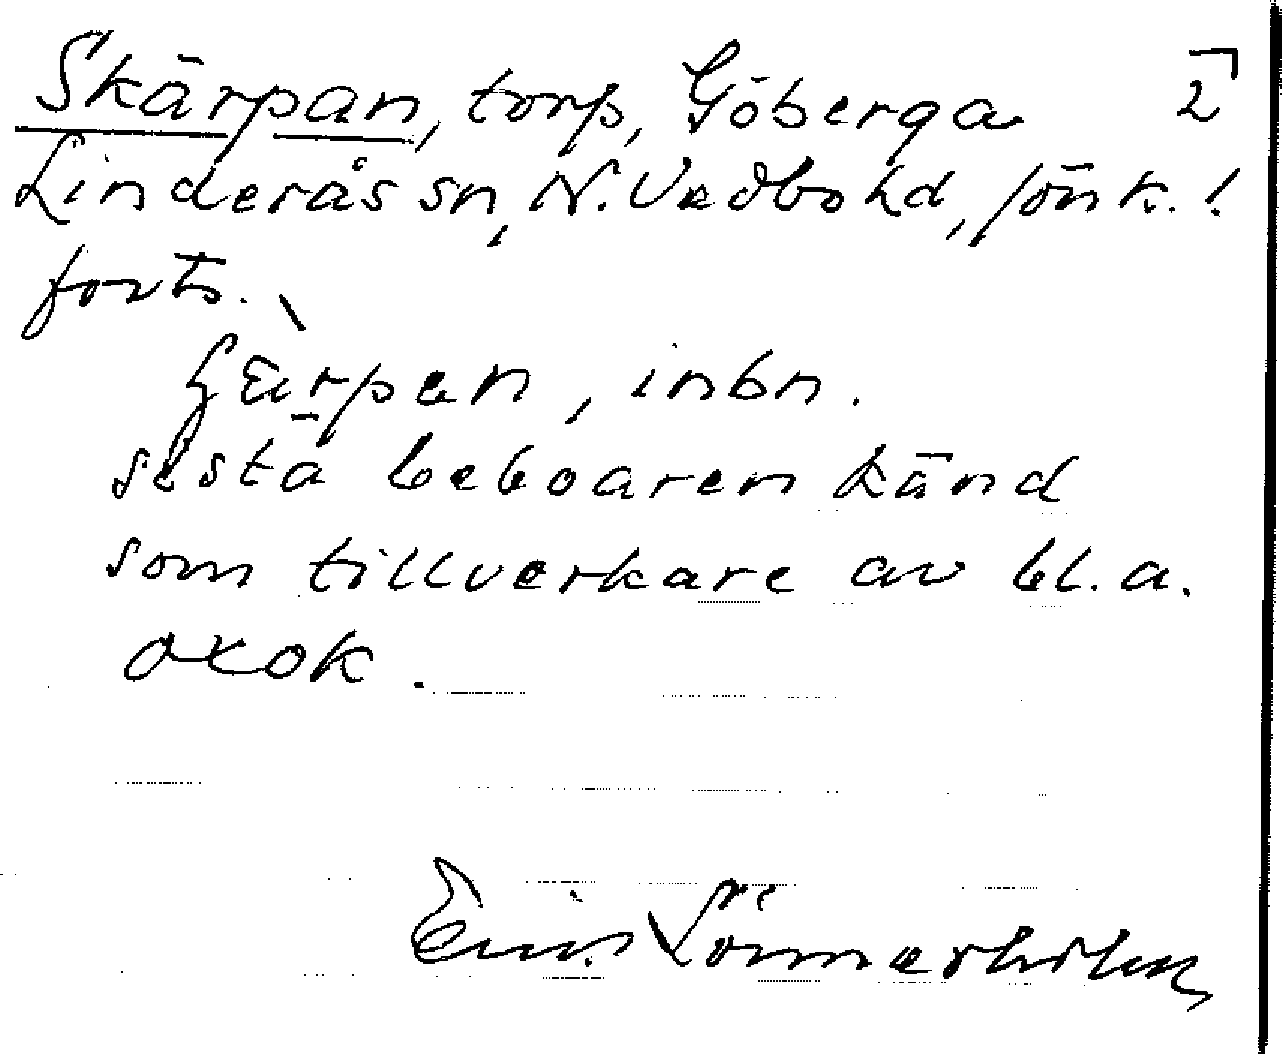 Skärpan, torp, Göberga 2
Linderås sn, N. Vedbo hd, Jönk. l
forts.
Gärpen, inbn.
sista beboaren känd
som tillverkare av bl.a.
oxok.
Lönnerholm